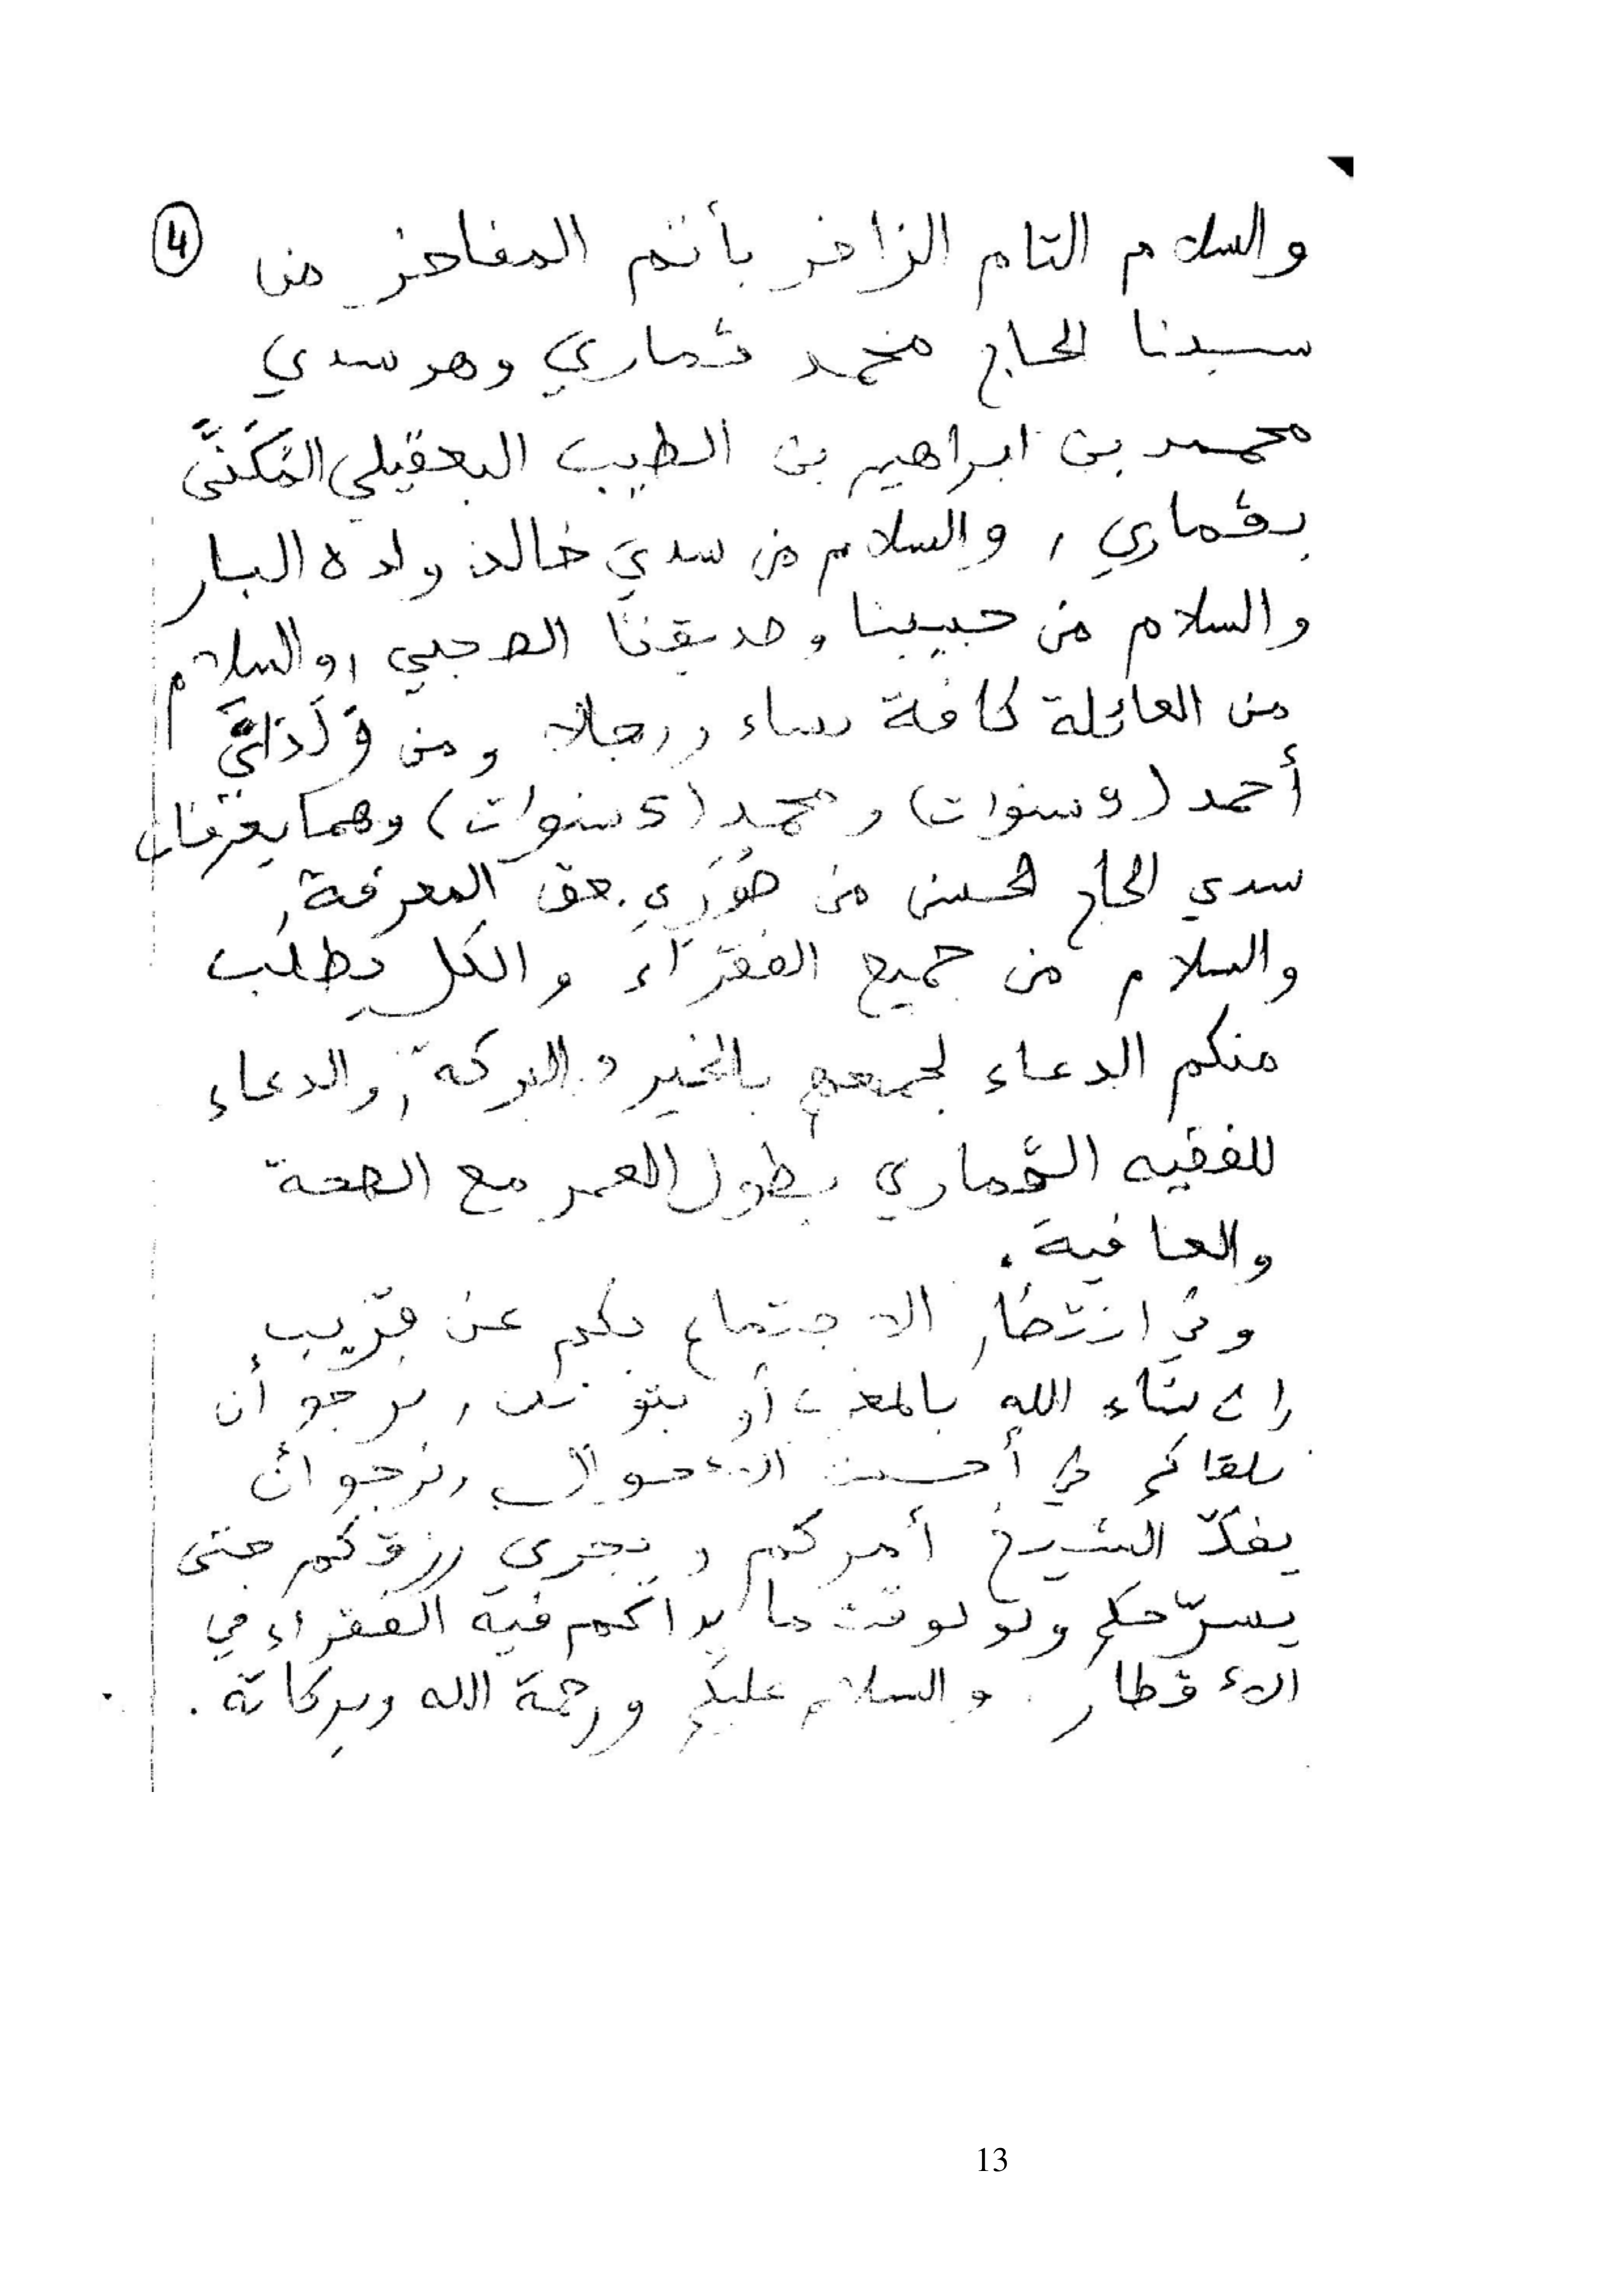 والسلام التام الزاخر بأتم المفاخر من ④
سيدنا الحاج محمد ڤماري وهو سدي
محمد بن ابراهيم بن الطيب البعقيلي المَكَنَّى
بڤماري، والسلام من سدي خالد ولده البار
والسلام من حبيبنا وصديقنا الصحبي، والسلام
من العائلة كافة نساء ورجالا ومن وَلَدَايَّ
أحمد (9 سنوات) ومحمد (5 سنوات) وهما يعرفان
سدي الحاج الحسين من صُوَرِي حق المعرفة،
والسلام من جميع الفقراء والكل يطلب
منكم الدعاء لجمعهم بالخير والبركة، والدعاء
للفقيه الڤماري بطول العمر مع الصحة
والعافية.
وفي انتظار الاجتماع بكم عن قريب
إن شاء الله بالمغرب أو بتونس، نرجو أن
نلقاكم في أحسن الأحوال، ونرجو أن
يفكّ الشيخ أمركم ويجري رزقكم حتى
يسرّحكم ولو لوقت ما يراكم فيه الفقراء في
الأقطار. والسلام عليكم ورحمة الله وبركاته.
13